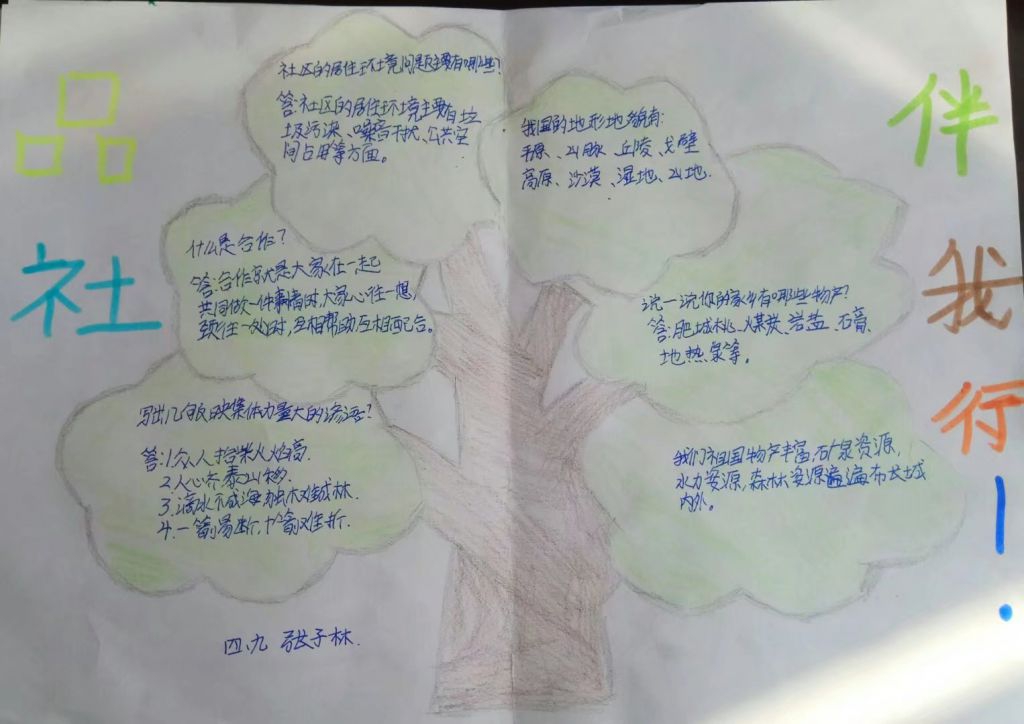 品
社
伴
我
行！
社区的居住环境问题主要有哪些？
答：社区的居住环境主要有垃
圾污染、噪音干扰、公共空
间占用等方面。
我国的地形地貌有：
平原、山脉、丘陵、戈壁
高原、沙漠、湿地、山地.
什么是合作？
答：合作就是大家在一起
共同做一件事时，大家心往一想，
颈往一处时，互相帮助互相配合。
说一说你的家乡有哪些物产？
答：肥城桃、煤炭、岩盐、石膏、
地热泉等。
写出几句反映集体力量大的谚语？
答：1.众人拾柴火焰高.
2.人心齐泰山移.
3.滴水不成海独木难成林.
4.一箭易断，十箭难折.
我们祖国物产丰富，矿泉资源，
水力资源，森林资源遍遍布长城
内外。
四、九 张子林.